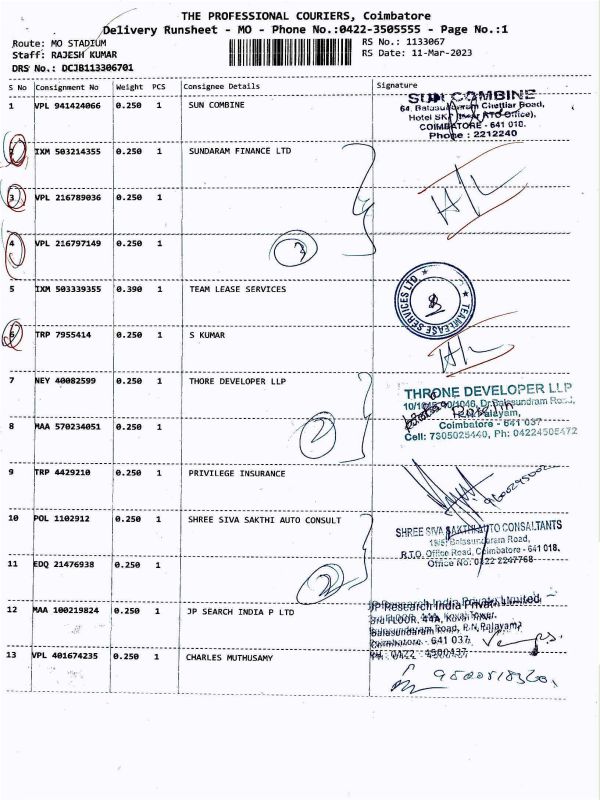 THE PROFESSIONAL COURIERS, Coimbatore
Delivery Runsheet - MO - Phone No.:0422-3505555 - Page No.:1
Route: MO STADIUM
RS No.: 1133067
Staff: RAJESH KUMAR
RS Date: 11-Mar-2023
DRS No.: DCJB113306701
S No Consignment No Weight PCS Consignee Details Signature
1 VPL 941424066 0.250 1 SUN COMBINE
SUN COMBINE
64, Balasundaram Chettiar Road,
Hotel (Near RTO Office),
COIMBATORE - 641 018.
Phone : 2212240
2 IXM 503214355 0.250 1 SUNDARAM FINANCE LTD
3 VPL 216789036 0.250 1
H/L
4 VPL 216797149 0.250 1
3
5 IXM 503339355 0.390 1 TEAM LEASE SERVICES
TEAMLEASE SERVICES LTD
6 TRP 7955414 0.250 1 S KUMAR
H/L
7 NEY 40082599 0.250 1 THORE DEVELOPER LLP
THRONE DEVELOPER LLP
Balasundram Road,
Palayam,
8 MAA 570234051 0.250 1
2
Coimbatore - 641 037
Cell: 7305025440, Ph: 04224506472
9 TRP 4429210 0.250 1 PRIVILEGE INSURANCE
10 POL 1102912 0.250 1 SHREE SIVA SAKTHI AUTO CONSULT
SHREE SIVA SAKTHI AUTO CONSALTANTS
Balasundaram Road,
R.T.O. Office Road, Coimbatore - 641 018.
Office No: 0422 2247768
11 EDQ 21476938 0.250 1
2
12 MAA 100219824 0.250 1 JP SEARCH INDIA P LTD
JP Research India Private Limited
3rd FLOOR, 44A, Kovai Tower,
Balasundaram Road, P.N.Palayam,
Coimbatore - 641 037
13 VPL 401674235 0.250 1 CHARLES MUTHUSAMY